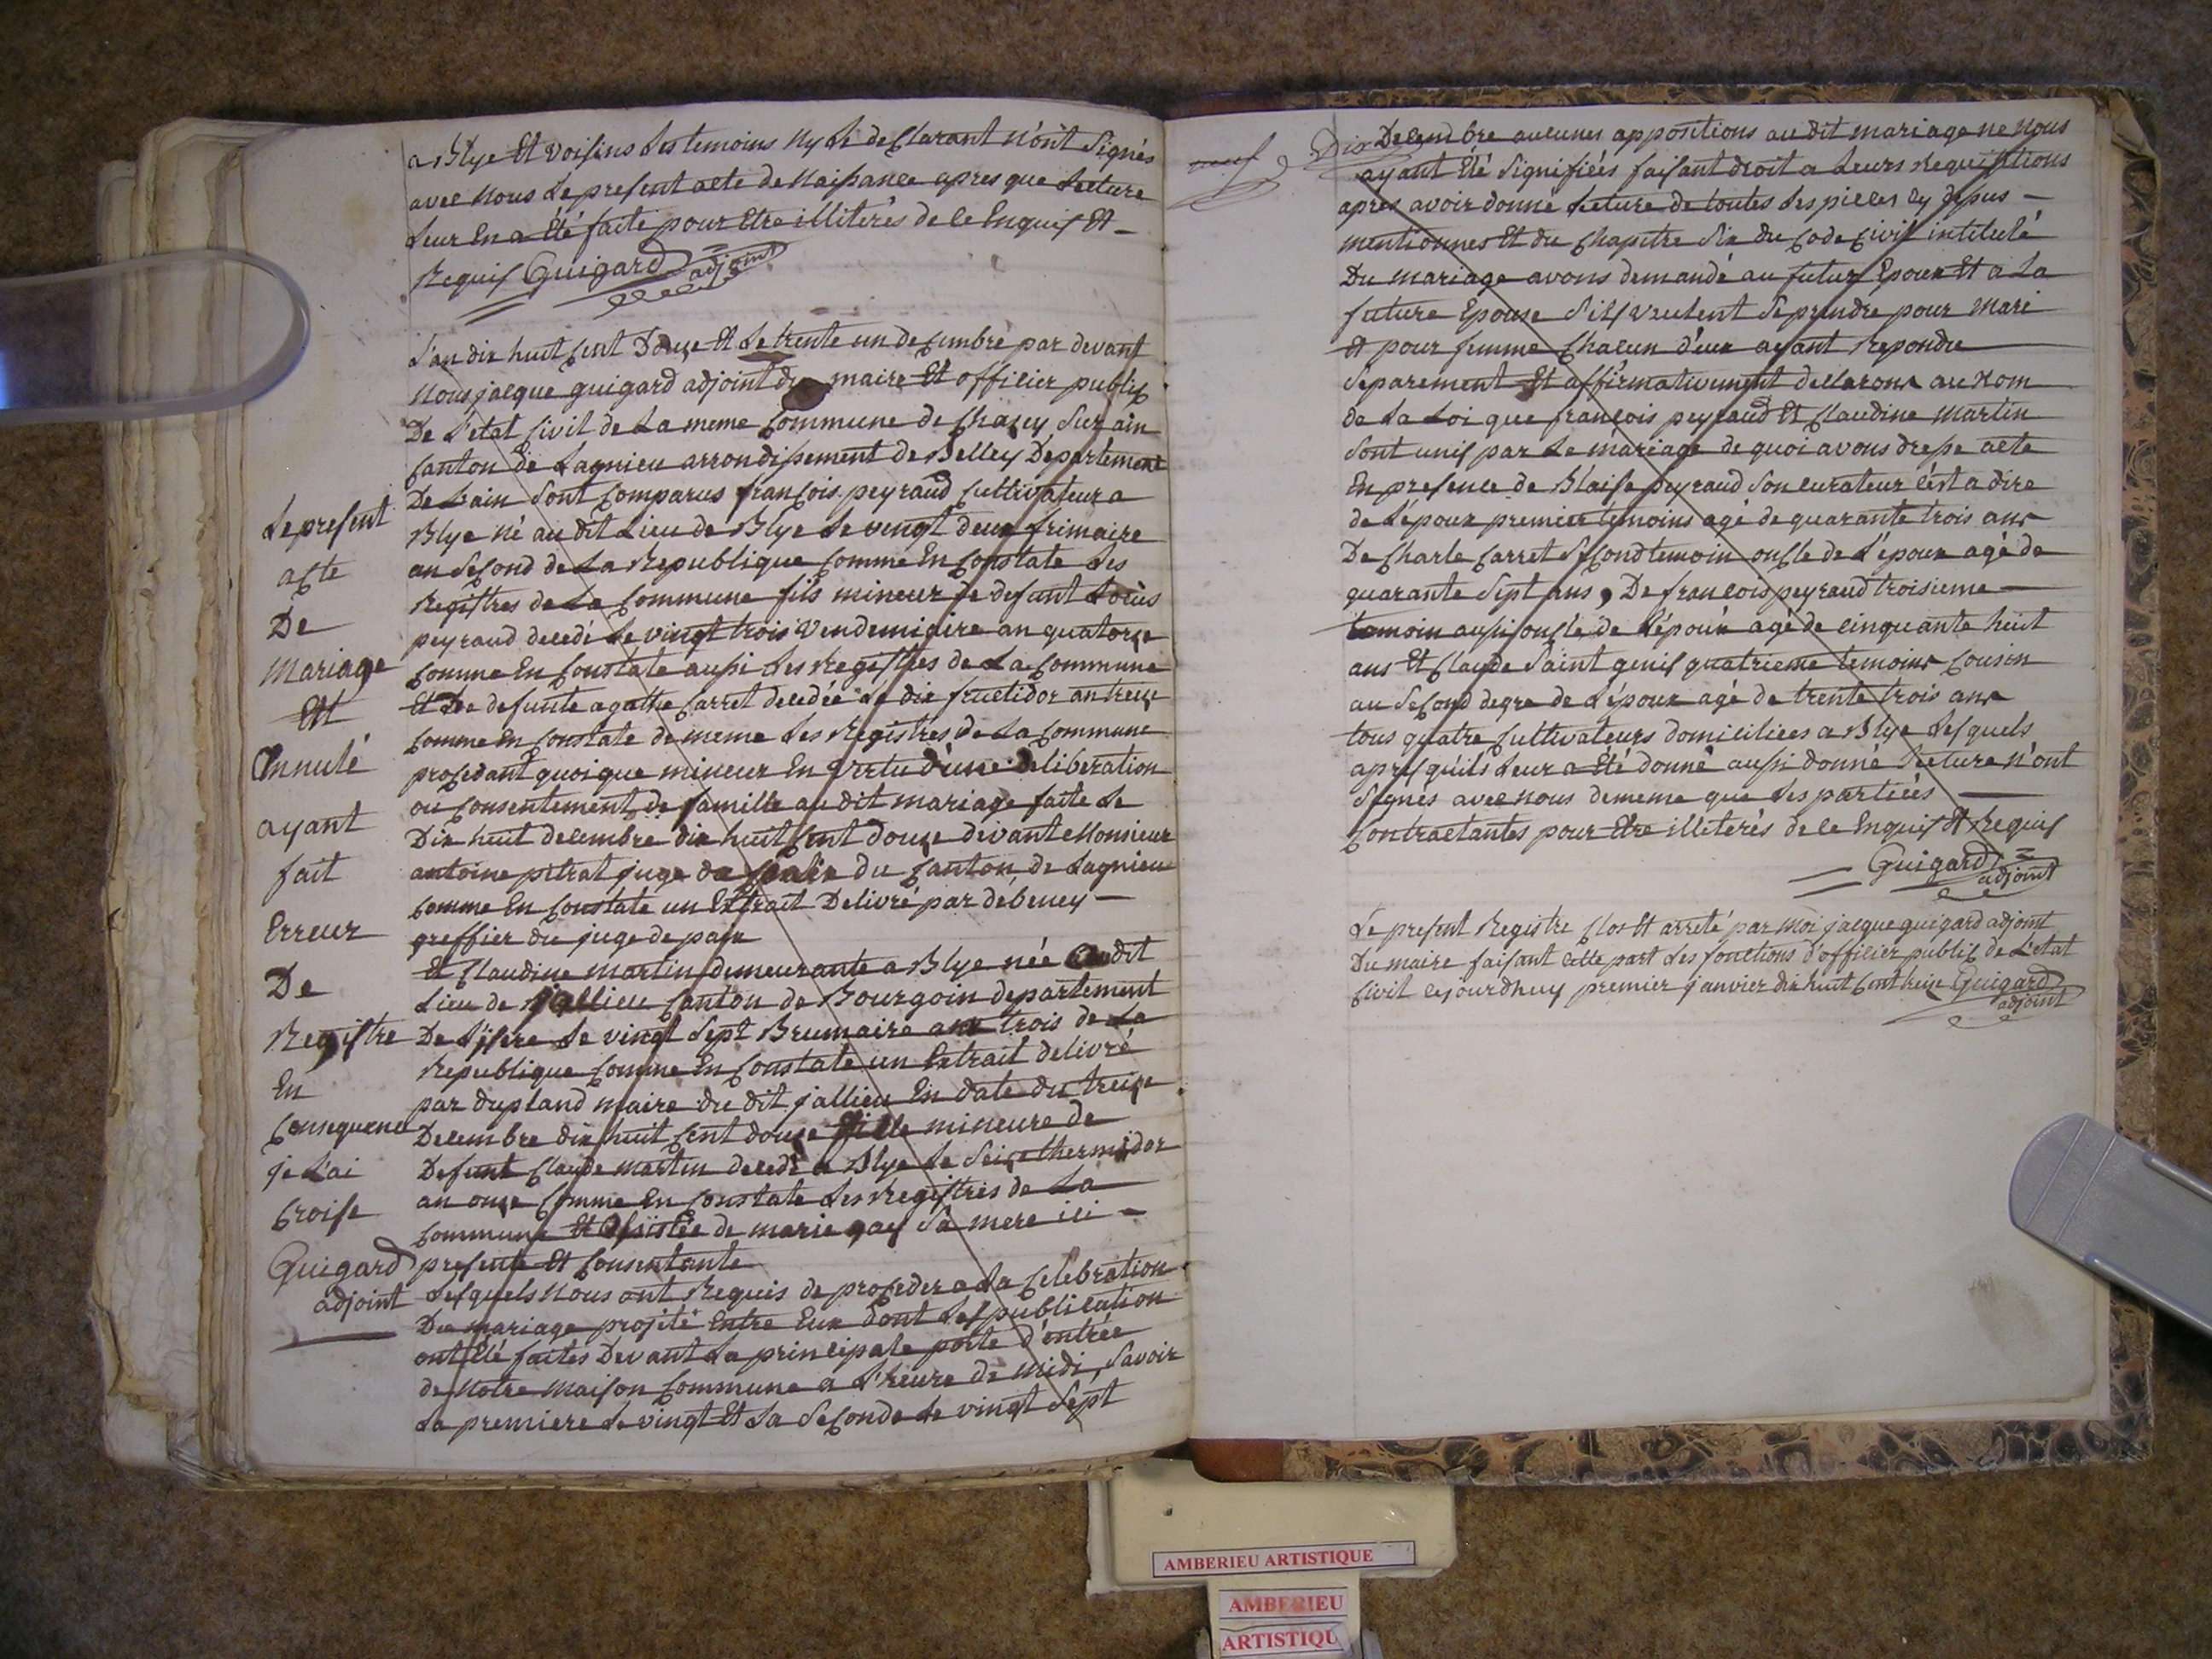 a Blye Et voisins Les temoins Ny Le declarant n'ont Signés
avec Nous Le present acte de Naissance apres que Lecture
Leur En a Eté faite pour Etre illiterés de ce Enquis Et
Requis Guigard adjoint
L'an dix huit Cent Douze Et Le trente un decembre par devant
Nous jacque guigard adjoint du maire Et officier public
De L'etat Civil de La meme Commune de Chazey Sur ain
Canton de Lagnieu arrondissement de Belley Departement
De L'ain Sont Comparus francois peyraud Cultivateur a
Blye Né au dit Lieu de Blye Le vingt deux frimaire
an Second de La Republique Comme En Constate Les
Registres de La Commune fils mineur de defunt Louis
peyraud decedé Le vingt trois Vendemiaire an quatorze
Comme En Constate aussi Les Registres de La Commune
Et De defunte agathe Carret decedée Le dix fructidor an treize
Comme En Constate de meme Les Registres de La Commune
procedant quoique mineur En Vertu d'une deliberation
ou Consentement de famille au dit mariage faite Le
Dix huit decembre dix huit Cent douze devant Monsieur
antoine pitrat juge de paix du Canton de Lagnieu
Comme En Constate un Extrait Delivré par débeney
greffier du juge de paix
Et Claudine martin demeurante a Blye née audit
Lieu de jallieu Canton de Bourgoin departement
De L'isere Le vingt Sept Brumaire an trois de La
Republique Comme En Constate un Extrait delivré
par dupland maire du dit jallieu En date du treize
Decembre dix huit Cent douze fille mineure de
Defunt Claude martin decedé a Blye Le Seize thermidor
an onze Comme En Constate Les Registres de La
Commune Et assistée de marie gay Sa mere ici
presente Et Consentante
Lesquels Nous ont Requis de proceder a La Celebration
Du mariage projeté Entre Eux dont Les publication
ont Eté faites Devant La principale porte d'entrée
de Notre Maison Commune a L'heure de Midi, Savoir
La premiere Le vingt Et La Seconde Le vingt Sept
Le present
acte
De
Mariage
Est
Annulé
ayant
fait
Erreur
De
Registre
En
Consequence
je L'ai
Croisé
Guigard
adjoint
neuf
Dix Decembre aucunes appositions au dit mariage ne Nous
ayant Eté Signifiées faisant droit a Leurs Requisitions
apres avoir donné Lecture de toutes Les pieces cy dessus
mentionnes Et du Chapitre Six du Code Civil intitulé
Du Mariage avons demandé au futur Epoux Et a La
future Epouse S'ils veulent Se prendre pour Mari
Et pour femme Chacun d'eux ayant Repondu
Separement Et affirmativement declarons au Nom
de La Loi que francois peyraud Et Claudine Martin
Sont unis par Le mariage de quoi avons dressé acte
En presence de Blaise peyraud Son curateur c'est a dire
de L'époux premier temoins agé de quarante trois ans
De Charle Carret Second temoin oncle de L'époux agé de
quarante Sept ans, De francois peyraud troisieme
temoin aussi oncle de L'époux agé de cinquante huit
ans Et Claude Saint genis quatrieme temoins Cousin
au Second degre de L'époux agé de trente trois ans
tous quatre Cultivateurs domiciliees a Blye Lesquels
apres qu'ils Leur a Eté donné aussi donné Lecture n'ont
Signés avec nous dememe que Les partiés
Contractantes pour Etre illiterés de ce Enquis Et Requis
Guigard
adjoint
Le present Registre Clos Et arreté par Moi jacque guigard adjoint
Du maire faisant cette part Les fonctions d'officier public de L'etat
Civil cejourdhuy premier janvier dix huit Cent treize Guigard
adjoint
AMBERIEU ARTISTIQUE
AMBERIEU
ARTISTIQU